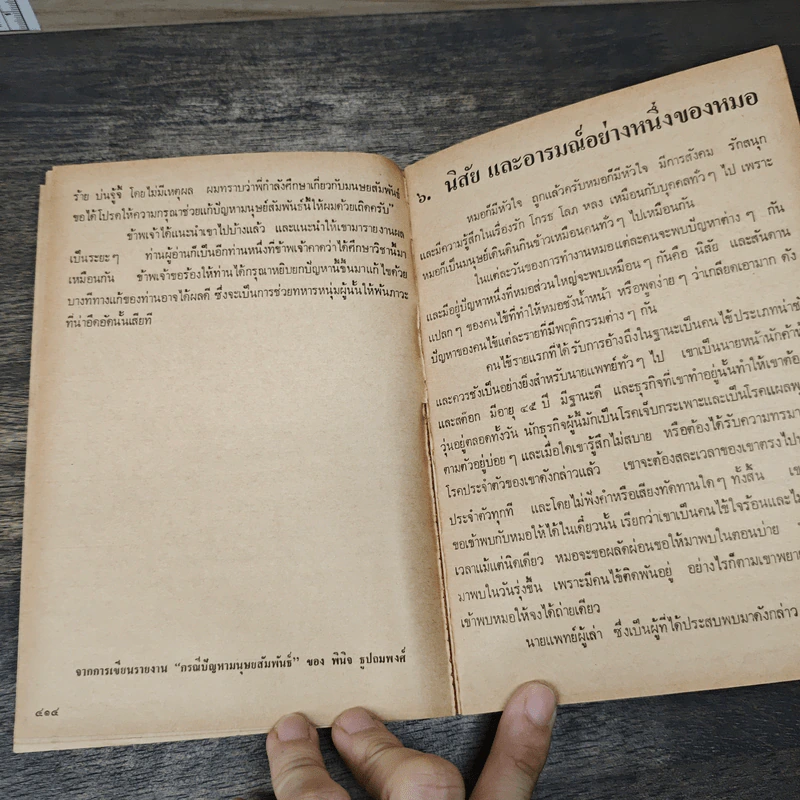 ร้าย บ่นจู้จี้ โดยไม่มีเหตุผล ผมทราบว่าพี่กำลังศึกษาเกี่ยวกับมนุษยสัมพันธ์
ขอได้โปรดให้ความกรุณาช่วยแก้ปัญหามนุษย์สัมพันธ์นี้ให้ผมด้วยเถิดครับ"
ข้าพเจ้าได้แนะนำเขาไปบ้างแล้ว และแนะนำให้เขามารายงานผล
เป็นระยะๆ ท่านผู้อ่านก็เป็นอีกท่านหนึ่งที่ข้าพเจ้าคาดว่าได้ศึกษาวิชานี้มา
เหมือนกัน ข้าพเจ้าขอร้องให้ท่านได้กรุณาหยิบยกปัญหานี้ขึ้นมาแก้ไขด้วย
บางทีทางแก้ของท่านอาจได้ผลดี ซึ่งจะเป็นการช่วยทหารหนุ่มผู้นั้นให้พ้นภาวะ
ที่น่าอึดอัดนั้นเสียที
จากการเขียนรายงาน "กรณีปัญหามนุษยสัมพันธ์" ของ พินิจ ธูปถมพงศ์
๔๑๔
๖. นิสัย และอารมณ์อย่างหนึ่งของหมอ
หมอก็มีหัวใจ ถูกแล้วครับหมอก็มีหัวใจ มีการสังคม รักสนุก
และมีความรู้สึกในเรื่องรัก โกรธ โลภ หลง เหมือนกับบุคคลทั่วๆ ไป เพราะ
หมอก็เป็นมนุษย์เดินดินกินข้าวเหมือนคนทั่วๆ ไปเหมือนกัน
ในแต่ละวันของการทำงานหมอแต่ละคนจะพบปัญหาต่างๆ กัน
และมีอยู่ปัญหาหนึ่งที่หมอส่วนใหญ่จะพบเหมือนๆ กันคือ นิสัย และสันดาน
แปลกๆ ของคนไข้ที่ทำให้หมอชังน้ำหน้า หรือพูดง่ายๆ ว่าเกลียดเอามาก ดัง
ปัญหาของคนไข้แต่ละรายที่มีพฤติกรรมต่างๆ กัน
คนไข้รายแรกที่ได้รับการอ้างถึงในฐานะเป็นคนไข้ประเภทน่า
และควรชังเป็นอย่างยิ่งสำหรับนายแพทย์ทั่วๆ ไป เขาเป็นนายหน้านักค้า
และสต๊อก มีอายุ ๔๕ ปี มีฐานะดี และธุรกิจที่เขาทำอยู่นั้นทำให้เขาต้อง
วุ่นอยู่ตลอดทั้งวัน นักธุรกิจผู้นี้มักเป็นโรคเจ็บกระเพาะและเป็นโรคแผล
ตามตัวอยู่บ่อยๆ และเมื่อใดเขารู้สึกไม่สบาย หรือต้องได้รับความทรมาน
โรคประจำตัวของเขาดังกล่าวแล้ว เขาจะต้องสละเวลาของเขาตรงไป
ประจำตัวทุกที และโดยไม่ฟังคำหรือเสียงทัดทานใดๆ ทั้งสิ้น
ขอเข้าพบกับหมอให้ได้ในเดี๋ยวนั้น เรียกว่าเขาเป็นคนไข้ใจร้อนและ
เวลาแม้แต่นิดเดียว หมอจะขอผลัดผ่อนขอให้มาพบในตอนบ่าย
มาพบในวันรุ่งขึ้น เพราะมีคนไข้ติดพันอยู่ อย่างไรก็ตามเขา
เข้าพบหมอให้จงได้ถ่ายเดียว
นายแพทย์ผู้เล่า ซึ่งเป็นผู้ที่ได้ประสบพบมาดังกล่าว